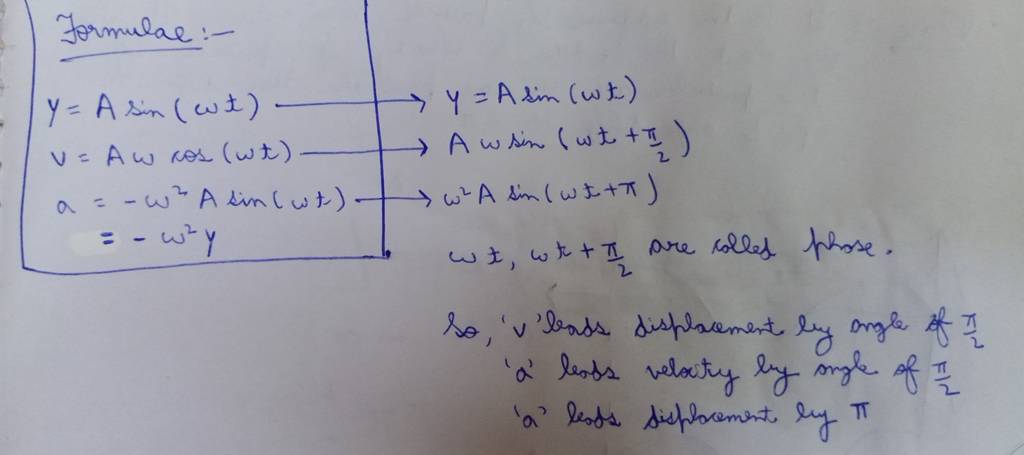 Formulae :-
y = A sin (ωt) → y = A sin (ωt)
v = A ω cos (ωt) → A ω sin (ωt + π/2)
a = -ω² A sin (ωt) → ω² A sin (ωt + π)
= - ω² y
ωt, ωt + π/2 are called phase.
So, 'v' leads displacement by angle of π/2
'a' leads velocity by angle of π/2
'a' leads displacement by π